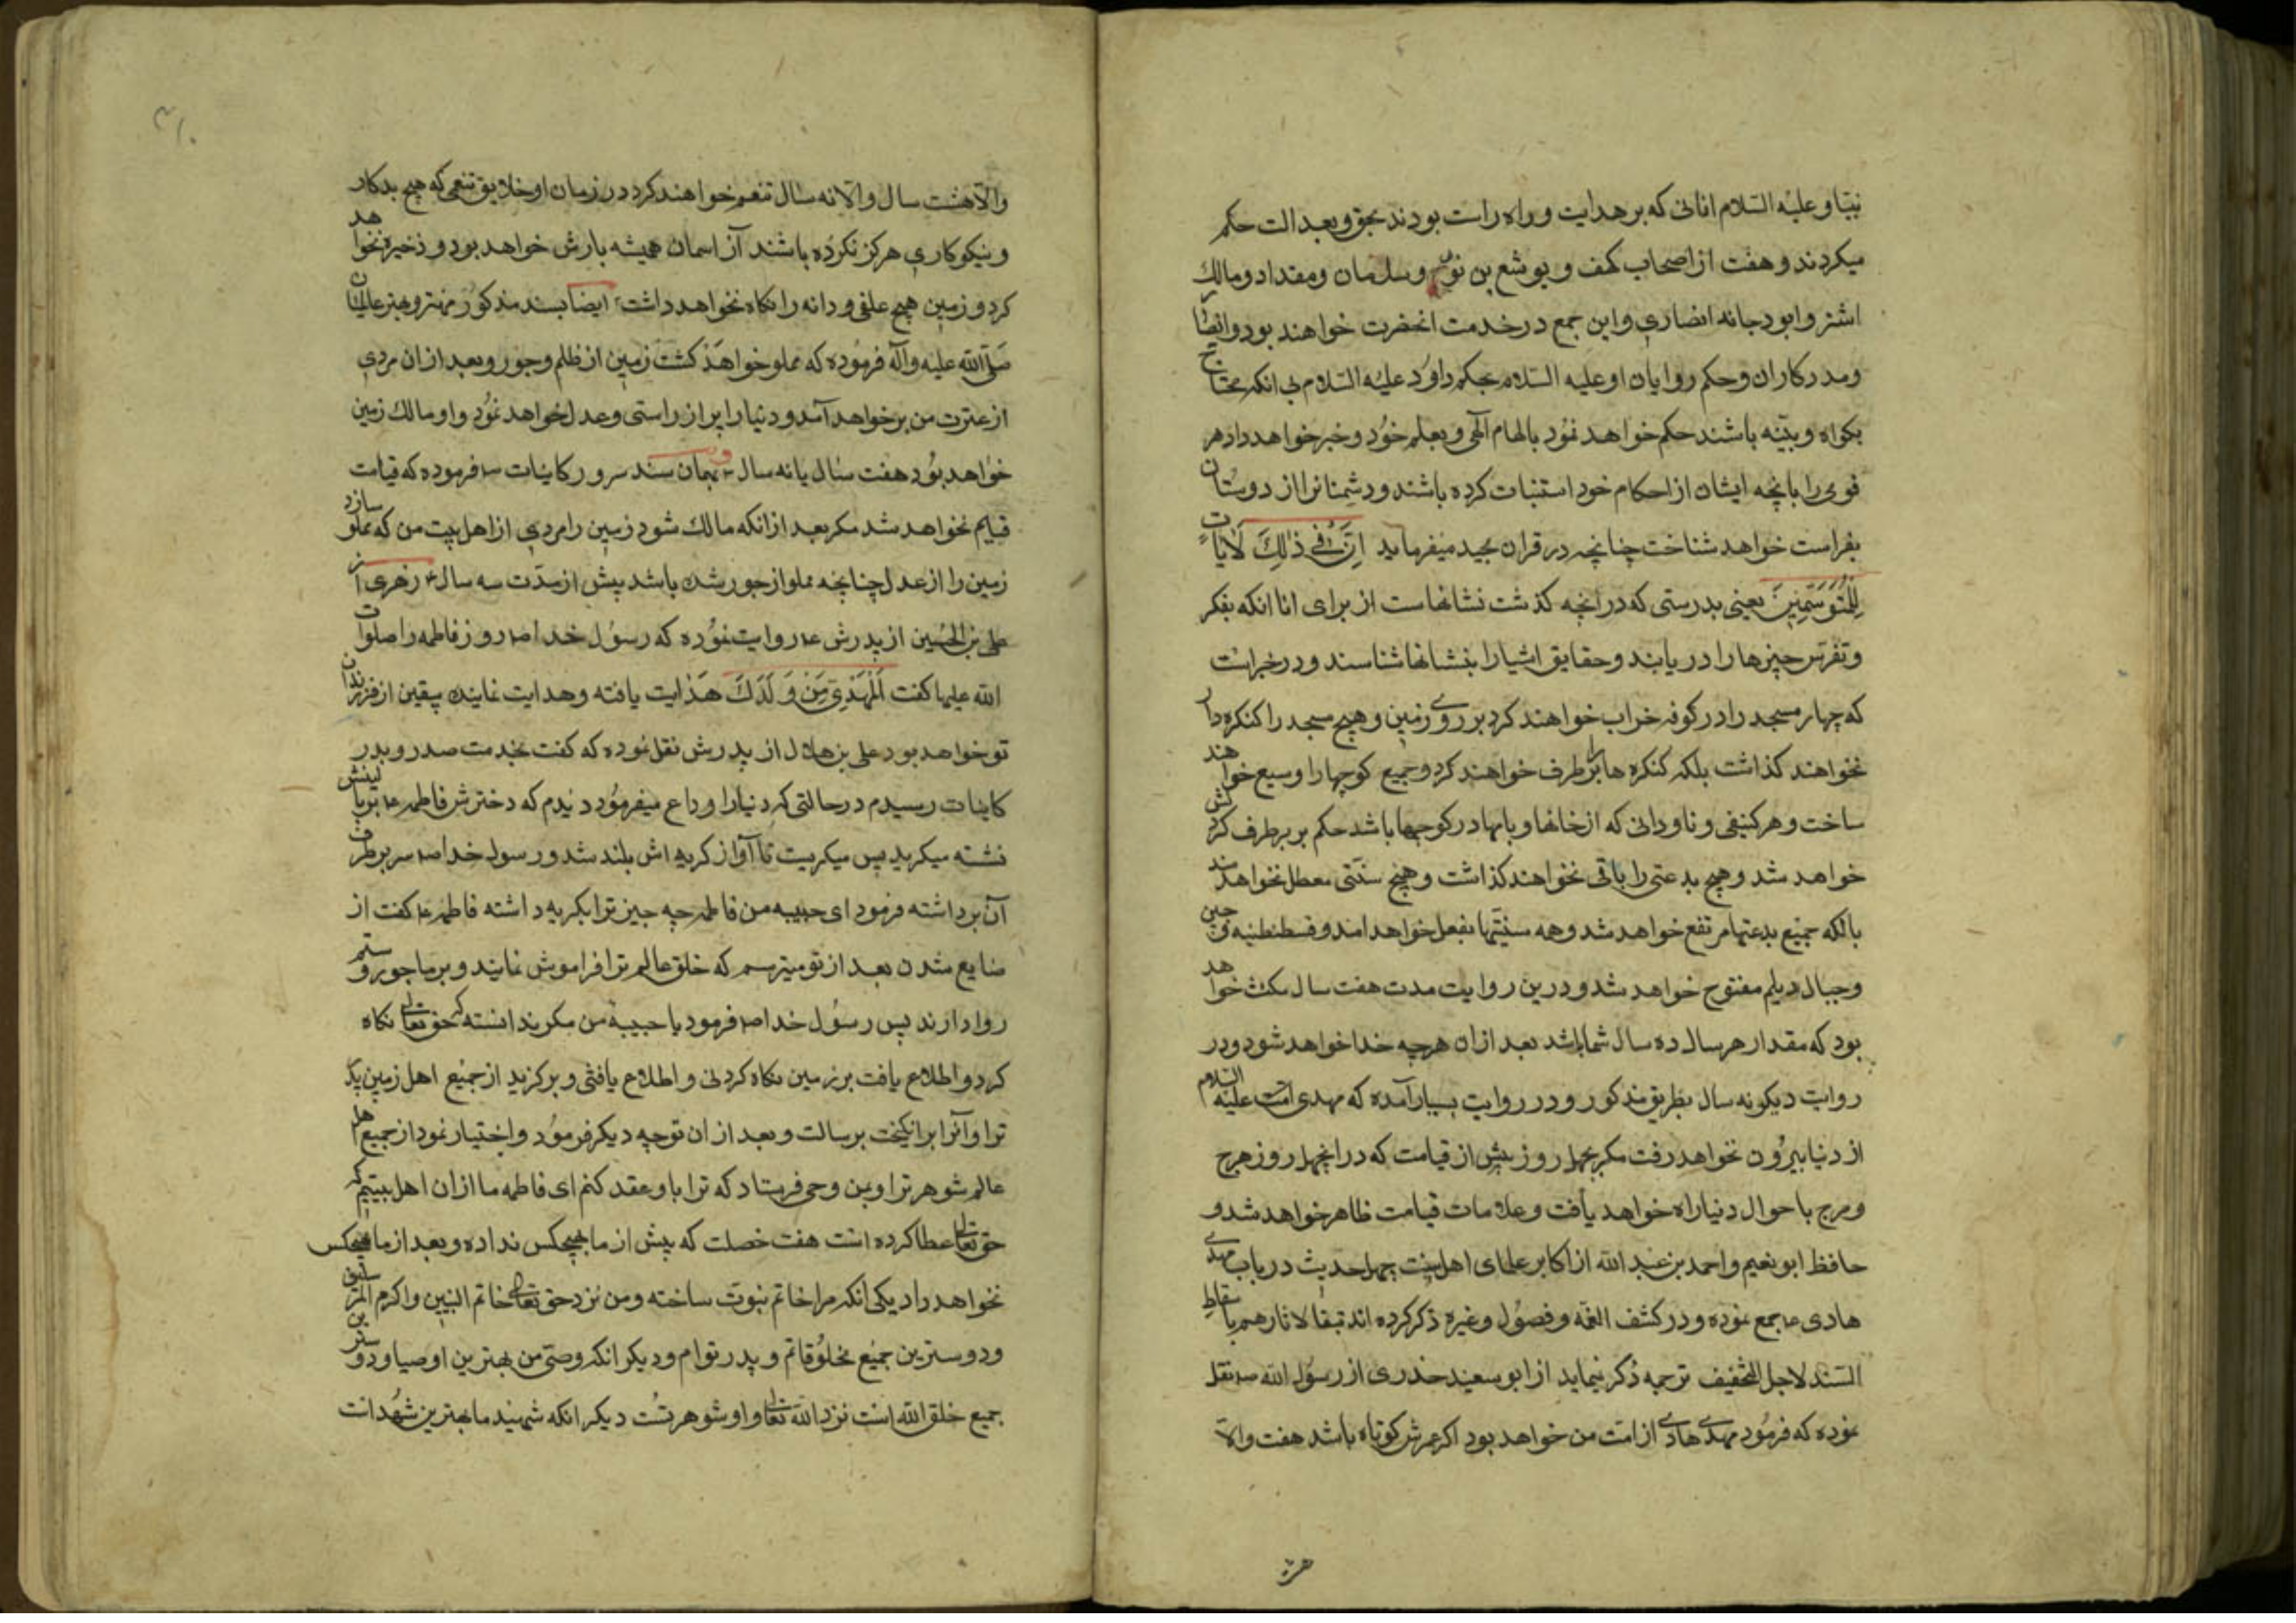 نبینا و علیه السلام انانی که بر هدایت و راه راست بودند بحق و بعدالت حکم
میکردند و هفت از اصحاب کهف و یوشع بن نون و سلمان و مقداد و مالک
اشتر و ابودجانه انصاری و این جمع در خدمت انحضرت خواهند بود و انصار
ومددکاران و حکم روایان او علیه السلام بحکم داود علیه السلام بی انکه محتاج
بکواه و بینه باشند حکم خواهد نمود بالهام الهی و بعلم خود و خبر خواهد داد هر
قومی را بانچه ایشان از احکام خود استنباث کرده باشند و دشمنانرا از دوستان
بفراست خواهد شناخت چنانچه در قران مجید میفرماید اِنَّ فی ذٰلِکَ لَاٰیاتٍ
لِلْمُتَوَسِّمینَ یعنی بدرستی که در انچه کذشت نشانهاست از برای انا انکه بفکر
وتفرس چیزها را دریابند و حقایق اشیا را بنشانها شناسند و در خبراست
که چهار مسجد را در کوفه خراب خواهند کرد بر روی زمین و هیچ مسجد را کنکره دار
نخواهند کذاشت بلکه کنکره ها را بر طرف خواهند کرد و جمیع کوچها را وسیع خواهند
ساخت و هر کنیفی و ناودانی که از خانها و بامها در کوچها باشد حکم بر برطرف کردنش
خواهد شد و هیچ بدعتی را باقی نخواهند کذاشت و هیچ سنتی معطل نخواهد ماند
بالکه جمیع بدعتها مرتفع خواهد شد و همه سنیتها بفعل خواهد امد و قسطنطنیه و چین
وجبال دیلم مفتوح خواهد شد و درین روایت مدت هفت سال مکث خواهد
بود که مقدار هر سال ده سال شما باشد بعد از ان هرچه خدا خواهد شود و در
روایت دیکر نه سال بطریق مذکور و در روایت بسیار آمده که مهدی امت علیه السلام
از دنیا بیرون نخواهد رفت مکر بچهل روز پیش از قیامت که در انچهل روز هرج
ومرج باحوال دنیا راه خواهد یافت و علامات قیامت ظاهر خواهد شد و
حافظ ابو نعیم و احمد بن عبد الله از اکابر علمای اهل سنت چهل حدیث در باب مهدی
هادی ع جمع نموده و در کشف الغمه و فصول و غیره ذکر کرده اند تبقا لاثارهم باسقاط
السند لاجل التخفیف ترجمه ذکر مینماید از ابو سعید خدری از رسول الله ص نقل
نموده که فرمود مهدی هادی از امت من خواهد بود اکر عمرش کوتاه باشد هفت والا
والا هشت سال والا نه سال تنعم خواهند کرد در زمان او خلایق تنعمی که هیچ بدکار
ونیکوکاری هرکز نکرده باشند آز اسمان همیشه بارش خواهد بود و ذخیره نخواهد
کرد و زمین هیچ علفی و دانه را نکاه نخواهد داشت ایضا بسند مذکور مهتر و بهتر عالمیان
صلی الله علیه وآله فرموده که مملو خواهد کشت زمین از ظلم و جور و بعد از ان مردی
از عترت من بر خواهد آمد و دنیا را پر از راستی و عدل خواهد نمود و او مالک زمین
خواهد بود هفت سال یا نه سال و بهمان سند سرور کاینات ص فرموده که قیامت
قایم نخواهد شد مکر بعد از انکه مالک شود زمین را مردی از اهل بیت من که مملو سازد
زمین را از عدل چنانچه مملو از جور شده باشد پیش از مدت سه سال زهری از
علی بن الحسین از پدرش ع روایت نموده که رسول خدا ص روز فاطمه را صلوات
الله علیها کفت اَلْمَهْدِیُّ مِنْ وَلَدِکَ هدایت یافته و هدایت نماینده بیقین از فرزندان
تو خواهد بود علی بن هلال از پدرش نقل نموده که کفت بخدمت صدر و بدر
کاینات رسیدم در حالتی که دنیا را وداع میفرمود دیدم که دخترش فاطمه ع بر بالینش
نشسته میکرید پس میکریست تا آواز کریه اش بلند شد و رسول خدا ص سر بر طرف
آن برداشته فرمود ای حبیبه من فاطمه چه چیز ترا بکریه داشته فاطمه ع کفت از
ضایع شدن بعد از تو میترسم که خلق عالم ترا فراموش نمایند و بر ما جور و ستم
روا دارند پس رسول خدا ص فرمود یا حبیبة من مکر ندانسته که حق تعالی نکاه
کرد و اطلاع یافت بر زمین نکاه کردنی و اطلاع یافتنی و برکزید از جمیع اهل زمین پدر
ترا و آنرا برانکیخت برسالت و بعد از ان توجه دیکر فرمود و اختیار نمود از جمیع اهل
عالم شوهر ترا و بمن وحی فرستاد که ترا باو عقد کنم ای فاطمه ما از ان اهل بیتیم که
حق تعالی عطا کرده است هفت خصلت که پیش از ما بهیچکس نداده و بعد از ما بهیچکس
نخواهد داد یکی انکه مرا خاتم نبوت ساخته و من نزد حق تعالی خاتم النبیین و اکرم المرسلین
ودوسترین جمیع مخلوقاتم و پدر توام و دیکر انکه وصی من بهترین اوصیا و دوسترین
جمیع خلق الله است نزد الله تعالی و او شوهر تست دیکر انکه شهید ما بهترین شهداست